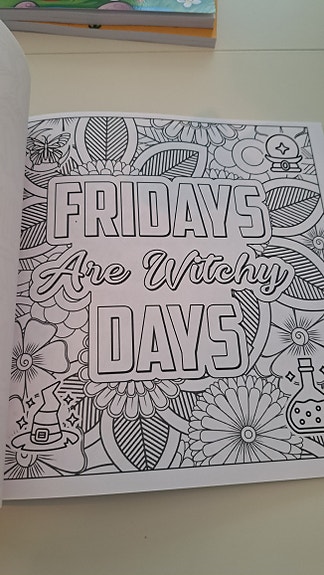 FRIDAYS
Are Witchy
DAYS